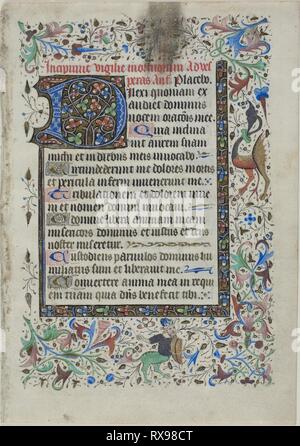 Incipiunt vigilie mortuorum Ad ves
peras Ant. Placebo.
Dilexi quoniam ex
audiet dominus
vocem oracōis mee.
Quia inclina
uit aurem suam
michi et in diebus meis inuocabo.
Circumdederunt me dolores mortis
et pericula inferni inuenerunt me.
Tribulacionem et dolorem inue
ni et nomen domini
O domine libera animam meam
misericors dominus et iustus et deus
noster miseretur.
Custodiens paruulos dominus hu
miliatus sum et liberauit me.
Conuertere anima mea in requi
em tuam quia dn̄s benefecit tibi.
alamy
Image ID: RX98CT
www.alamy.com